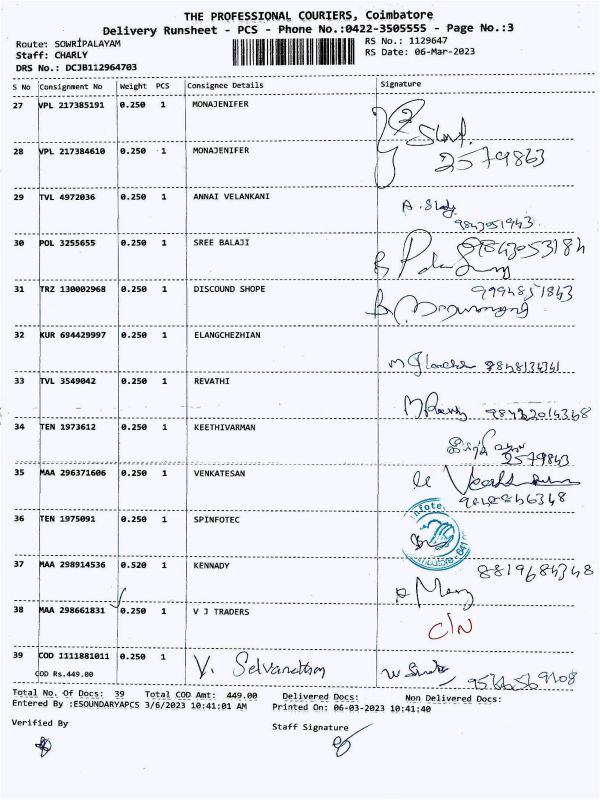 THE PROFESSIONAL COURIERS, Coimbatore
Delivery Runsheet - PCS - Phone No.:0422-3505555 - Page No.:3
Route: SOWRIPALAYAM
RS No.: 1129647
Staff: CHARLY
RS Date: 06-Mar-2023
DRS No.: DCJB112964703
S No Consignment No Weight PCS Consignee Details Signature
27 VPL 217385191 0.250 1 MONAJENIFER
28 VPL 217384610 0.250 1 MONAJENIFER
2579863
29 TVL 4972036 0.250 1 ANNAI VELANKANI
9843051943
30 POL 3255655 0.250 1 SREE BALAJI
9843053184
31 TRZ 130002968 0.250 1 DISCOUND SHOPE
9994851843
32 KUR 694429997 0.250 1 ELANGCHEZHIAN
33 TVL 3549042 0.250 1 REVATHI
34 TEN 1973612 0.250 1 KEETHIVARMAN
2579843
35 MAA 296371606 0.250 1 VENKATESAN
36 TEN 1975091 0.250 1 SPINFOTEC
37 MAA 298914536 0.520 1 KENNADY
8819684348
38 MAA 298661831 0.250 1 V J TRADERS
C/N
39 COD 1111881011 0.250 1 V. Selvanathan
COD Rs.449.00
Total No. Of Docs: 39 Total COD Amt: 449.00 Delivered Docs: Non Delivered Docs:
Entered By :ESOUNDARYAPCS 3/6/2023 10:41:01 AM Printed On: 06-03-2023 10:41:40
Verified By
Staff Signature